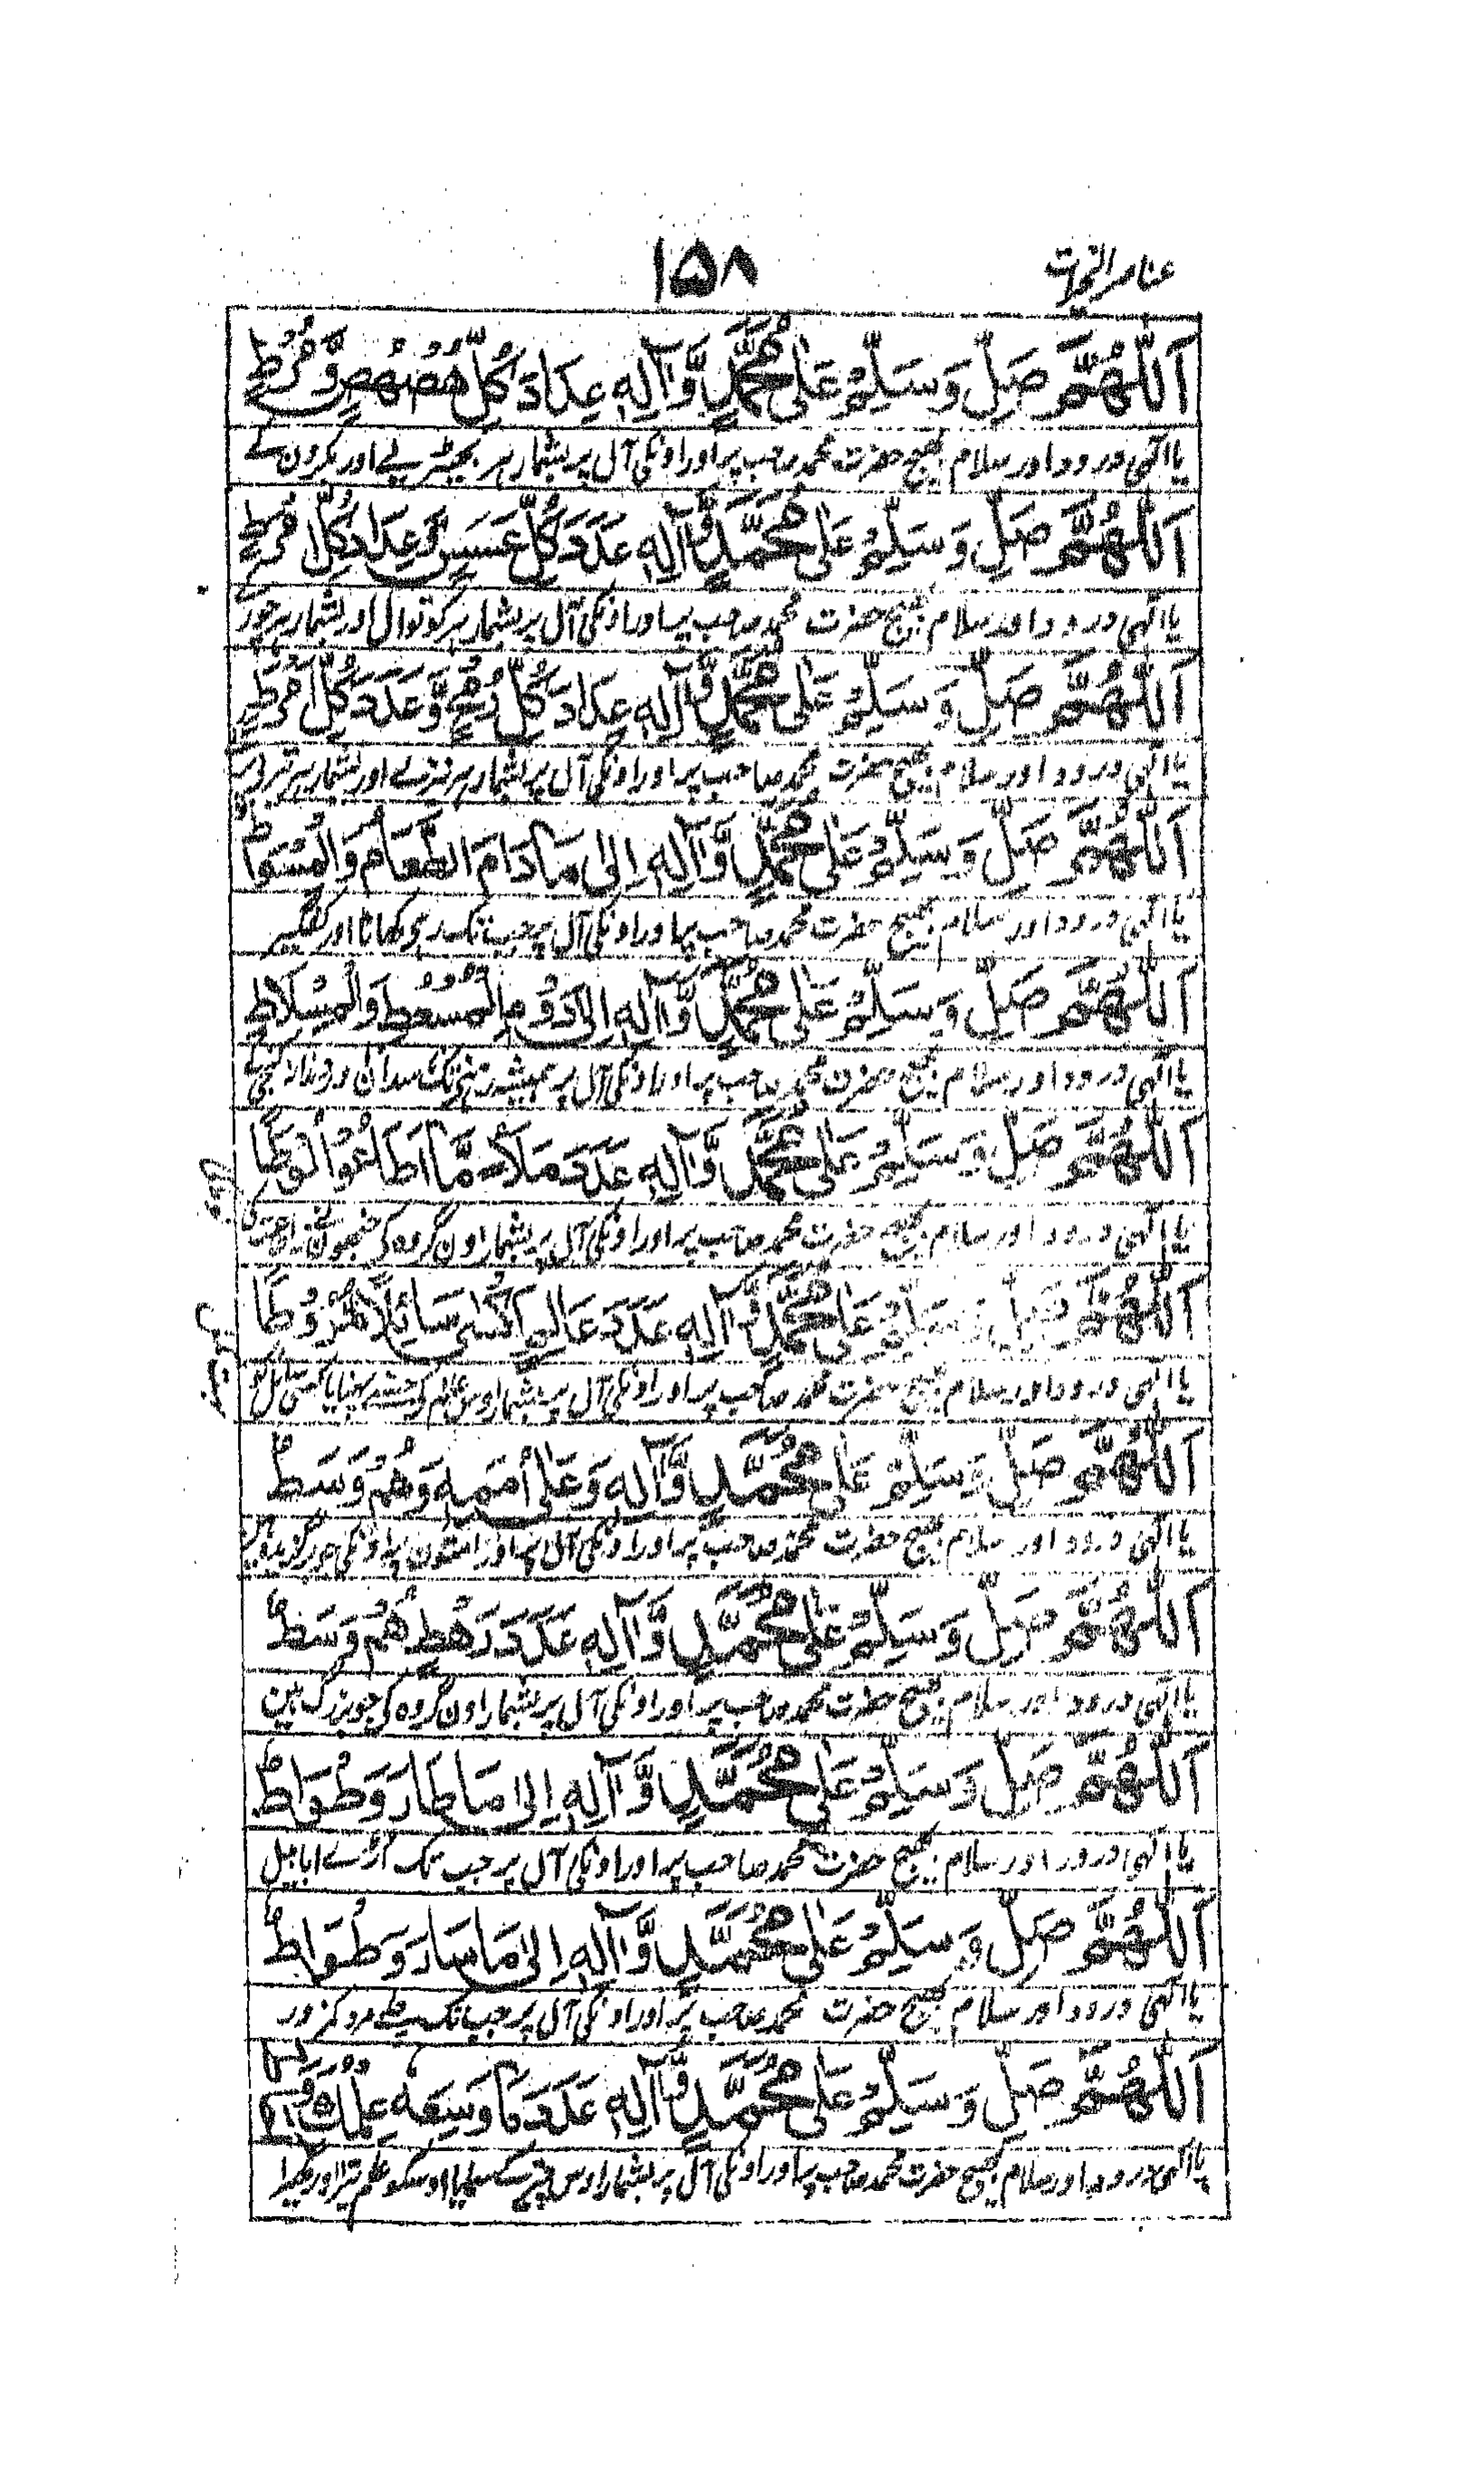 عناصر التحيات ۱۵۸
اَللّٰهُمَّ صَلِّ وَسَلِّمْ عَلٰى مُحَمَّدٍ وَّاٰلِهٖ عَدَدَ كُلِّ
یا الٰہی درود اور سلام بھیج حضرت محمد صاحب پر اور اونکی آل پر بشمار ہر بھیڑیے اور بکرون کے
اَللّٰهُمَّ صَلِّ وَسَلِّمْ عَلٰى مُحَمَّدٍ وَّاٰلِهٖ عَدَدَ كُلِّ عَسَسٍ وَّعَدَدَ كُلِّ
یا الٰہی درود اور سلام بھیج حضرت محمد صاحب پر اور اونکی آل پر بشمار ہر کوتوال اور بشمار ہر چور کے
اَللّٰهُمَّ صَلِّ وَسَلِّمْ عَلٰى مُحَمَّدٍ وَّاٰلِهٖ عَدَدَ كُلِّ وَّعَدَدَ كُلِّ
یا الٰہی درود اور سلام بھیج حضرت محمد صاحب پر اور اونکی آل پر بشمار ہر اور بشمار ہر
اَللّٰهُمَّ صَلِّ وَسَلِّمْ عَلٰى مُحَمَّدٍ وَّاٰلِهٖ اِلٰى مَا دَامَ الطَّعَامُ وَالْمِسْوَاطُ
یا الٰہی درود اور سلام بھیج حضرت محمد صاحب پر اور اونکی آل پر جب تک رہے کھانا اور کفگیر
اَللّٰهُمَّ صَلِّ وَسَلِّمْ عَلٰى مُحَمَّدٍ وَّاٰلِهٖ اِلٰى دَوْمِ الْمُسْعُطِ وَالْمِسْلَاطِ
یا الٰہی درود اور سلام بھیج حضرت محمد صاحب پر اور اونکی آل پر ہمیشہ رہنے تک
اَللّٰهُمَّ صَلِّ وَسَلِّمْ عَلٰى مُحَمَّدٍ وَّاٰلِهٖ عَدَدَ مَلَأٍ مَّا اَطَاعُوْا لُوْطًا
یا الٰہی درود اور سلام بھیج حضرت محمد صاحب پر اور اونکی آل پر بشمار اون گروہ کی
اَللّٰهُمَّ صَلِّ وَسَلِّمْ عَلٰى مُحَمَّدٍ وَّاٰلِهٖ عَدَدَ عَالِمٍ كَسٰى سَائِلًا مُرُوْطًا
یا الٰہی درود اور سلام بھیج حضرت محمد صاحب پر اور اونکی آل پر بشمار اوس عالم کی جسنے پہنایا کسی سائل کو
اَللّٰهُمَّ صَلِّ وَسَلِّمْ عَلٰى مُحَمَّدٍ وَّاٰلِهٖ وَعَلٰى اُمَمِهٖ وَهُمْ وَسَطٌ
یا الٰہی درود اور سلام بھیج حضرت محمد صاحب پر اور اونکی آل پر اور امتون پر اونکی
اَللّٰهُمَّ صَلِّ وَسَلِّمْ عَلٰى مُحَمَّدٍ وَّاٰلِهٖ عَدَدَ رَهْطٍ هُمْ وَسَطٌ
یا الٰہی درود اور سلام بھیج حضرت محمد صاحب پر اور اونکی آل پر بشمار اون گروہ کی جو بزرگ ہین
اَللّٰهُمَّ صَلِّ وَسَلِّمْ عَلٰى مُحَمَّدٍ وَّاٰلِهٖ اِلٰى مَا طَارَ وَطْوَاطٌ
یا الٰہی درود اور سلام بھیج حضرت محمد صاحب پر اور اونکی آل پر جب تک اڑے ابابیل
اَللّٰهُمَّ صَلِّ وَسَلِّمْ عَلٰى مُحَمَّدٍ وَّاٰلِهٖ اِلٰى مَا سَارَ وَطْوَاطٌ
یا الٰہی درود اور سلام بھیج حضرت محمد صاحب پر اور اونکی آل پر جب تک چلے مرد کمزور
اَللّٰهُمَّ صَلِّ وَسَلِّمْ عَلٰى مُحَمَّدٍ وَّاٰلِهٖ عَدَدَ مَا وَسِعَهٗ عِلْمُكَ
یا الٰہی درود اور سلام بھیج حضرت محمد صاحب پر اور اونکی آل پر بشمار اوس چیز کے سمایا اوسکو علم تیرا اور